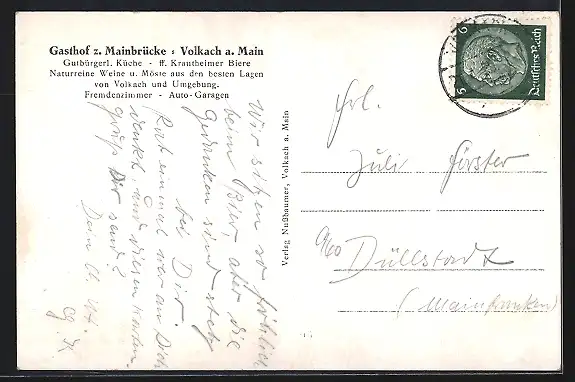 Gasthof z. Mainbrücke : Volkach a. Main
Gutbürgerl. Küche - ff. Krautheimer Biere
Naturreine Weine u. Möste aus den besten Lagen
von Volkach und Umgebung.
Fremdenzimmer - Auto-Garagen
Wir sitzen so fröhlich
beim Bier, aber die
Gedanken sind stets
bei Dir.
Rat einmal wer an Dich
denkt und diesen
Gruß Dir send?
Dein
Verlag Nußbaumer, Volkach a. Main
Frl.
Juli Förster
Düllstadt
(Mainfranken)
Deutsches Reich
6 6